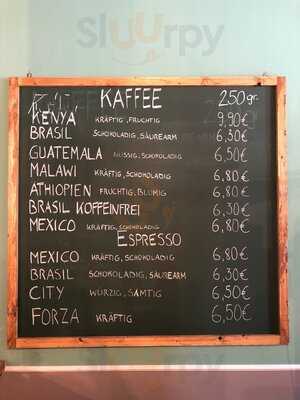 Sluurpy
KAFFEE 250gr.
KENYA KRÄFTIG, FRUCHTIG 9,90€
BRASIL SCHOKOLADIG, SÄUREARM 6,30€
GUATEMALA NUSSIG, SCHOKOLADIG 6,50€
MALAWI KRÄFTIG, SCHOKOLADIG 6,80€
ÄTHIOPIEN FRUCHTIG, BLUMIG 6,80€
BRASIL KOFFEINFREI 6,30€
MEXICO KRÄFTIG, SCHOKOLADIG 6,80€
ESPRESSO
MEXICO KRÄFTIG, SCHOKOLADIG 6,80€
BRASIL SCHOKOLADIG, SÄUREARM 6,30€
CITY WÜRZIG, SAMTIG 6,50€
FORZA KRÄFTIG 6,50€